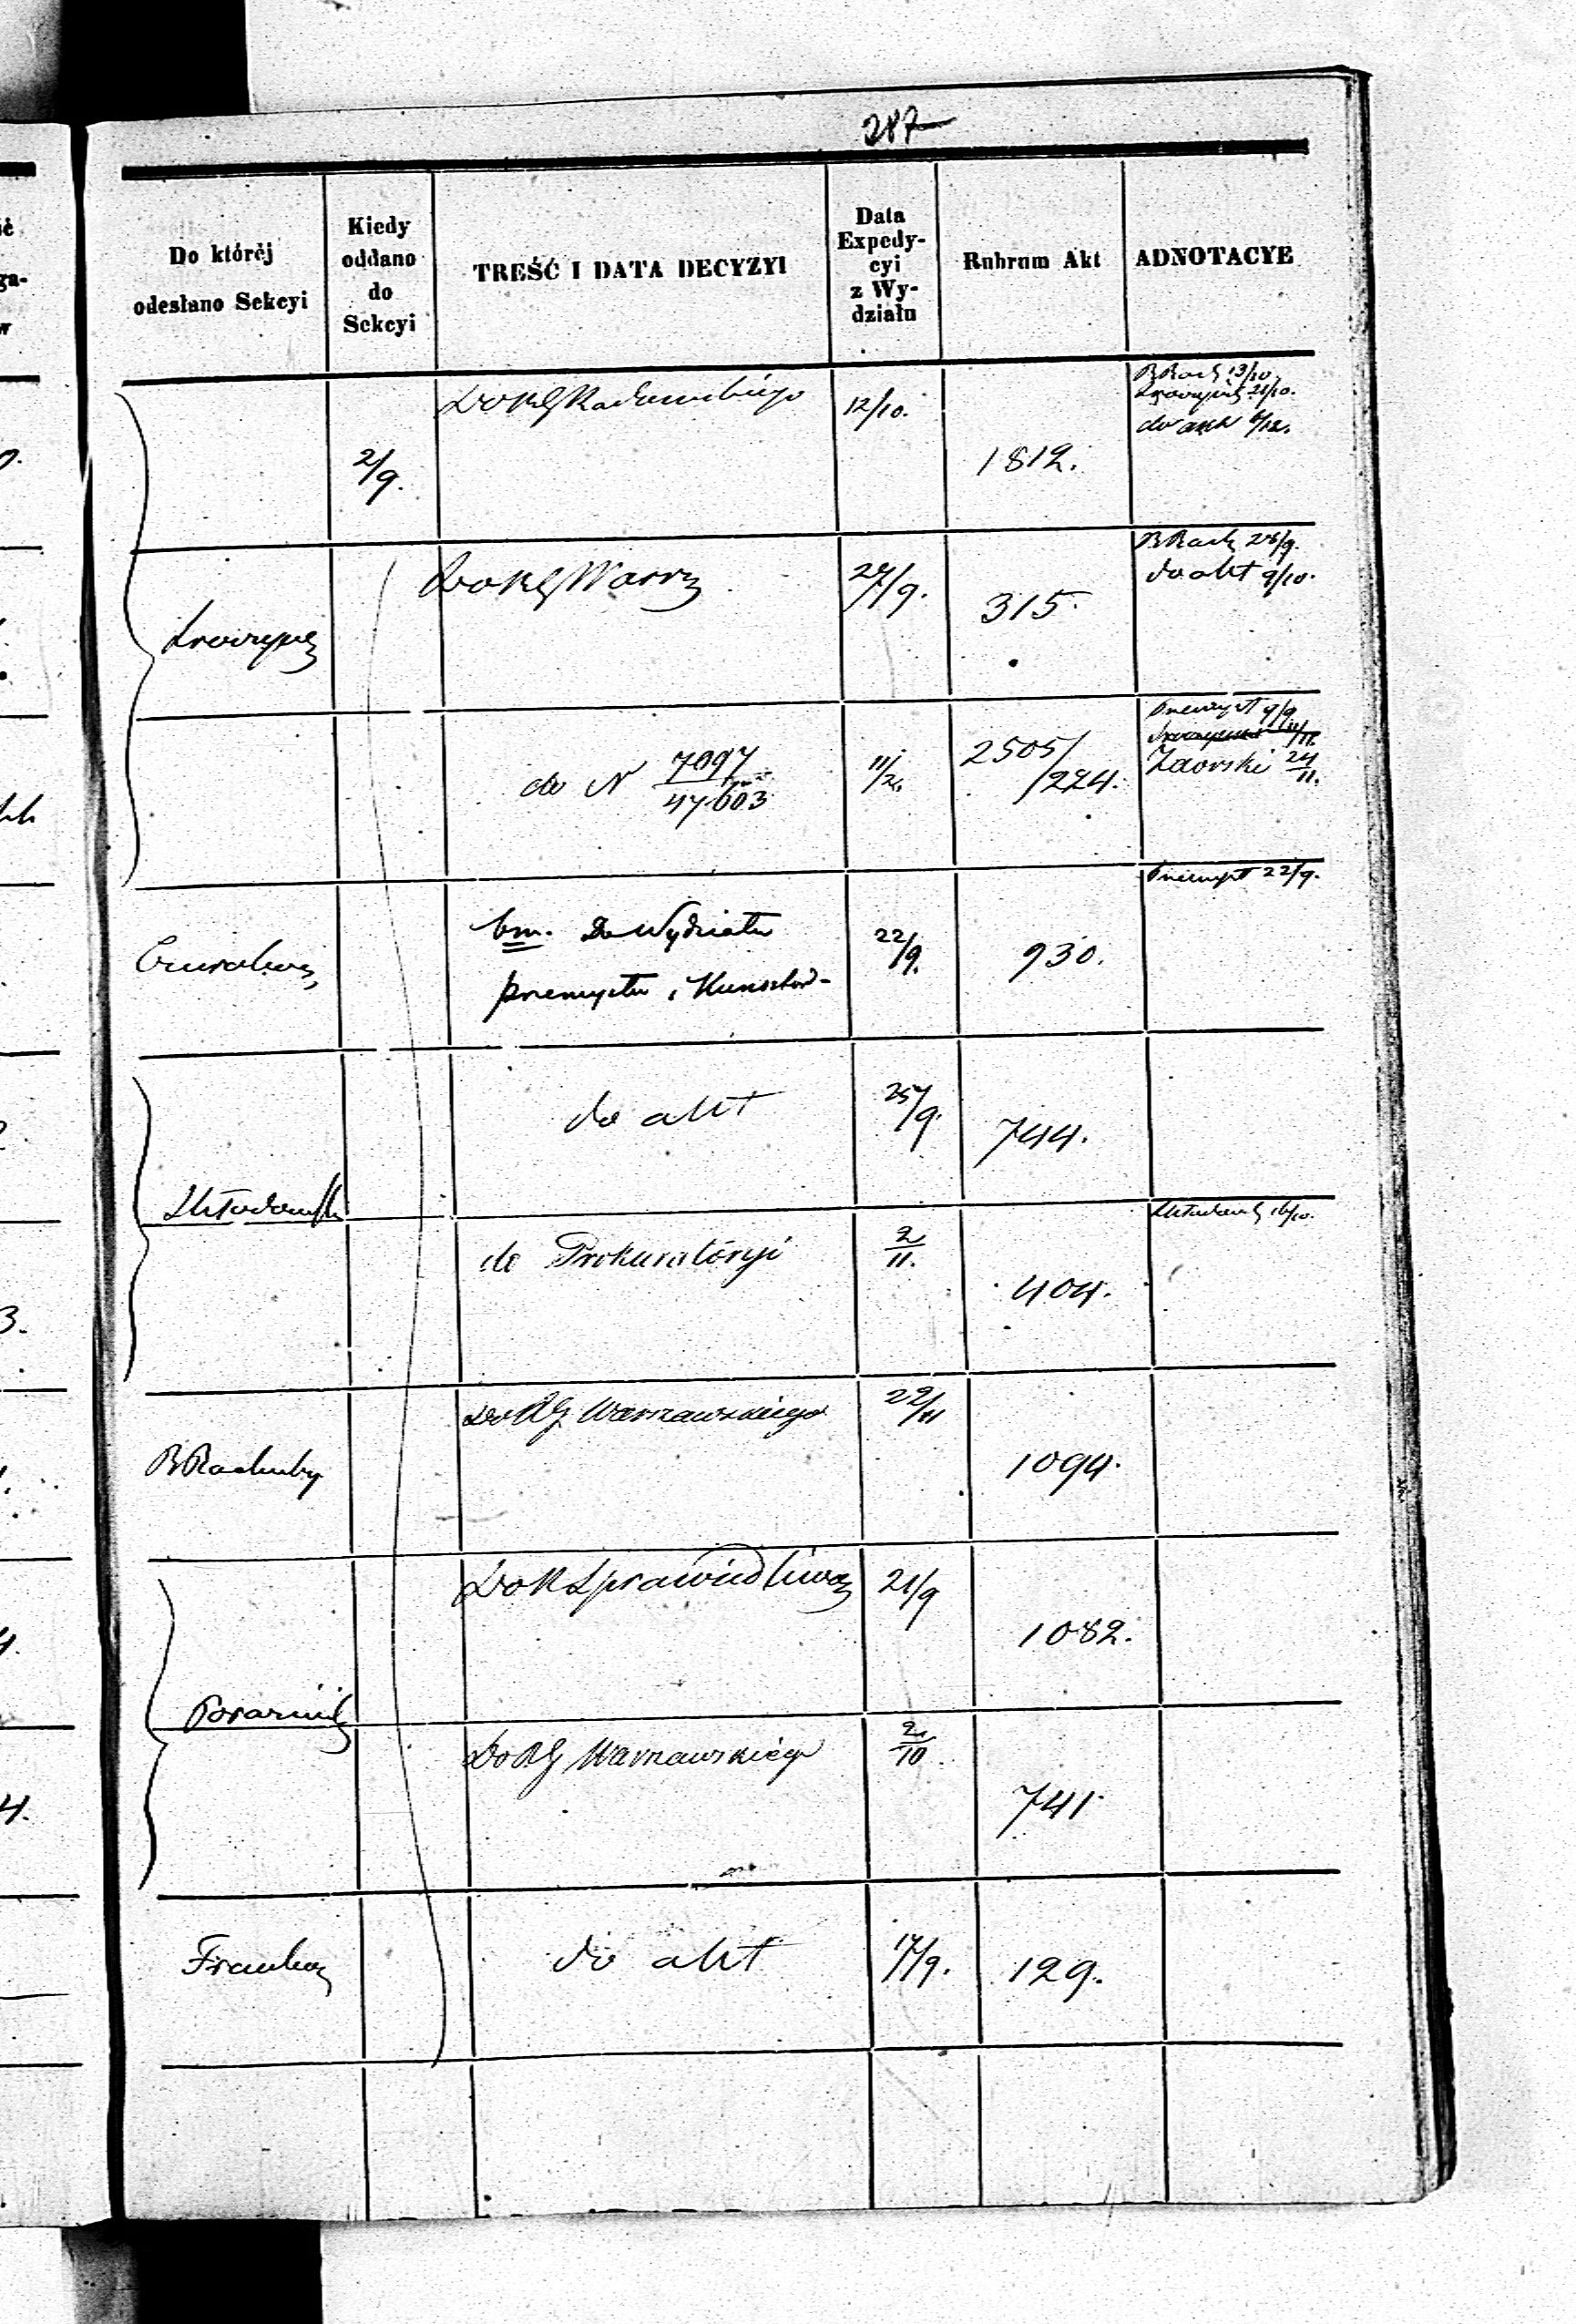 287
Do którėj
odesłano Sekcyi
Kiedy
oddano
do
Sekcyi
TREŚĆ I DATA DECYZYI
Data
Expedy-
cyi
z Wy-
działu
Rubrum Akt
ADNOTACYE
2/9.
Do RG Radomskiego
12/10.
1812.
B Rach 13/10
21/10.
do akt 6/12.
Do RG Warsz
29/9.
315.
B Rach 28/9.
do akt 9/10.
do N 7097
47603
11/2.
2505/
/224.
Przemysł 9/9
Zaorski 24/11.
bm. Do Wydziału
przemysłu i Kunsztów
22/9.
930.
Przemysł 22/9.
do akt
25/9.
744.
do Prokuratoryi
2/11.
404.
16/10.
B Rachuby
Do RG Warszawskiego
22/11
1094.
Do K Sprawiedliwoś
21/9
1082.
Do RG Warszawskiego
2/10
741.
do akt
17/9.
129.